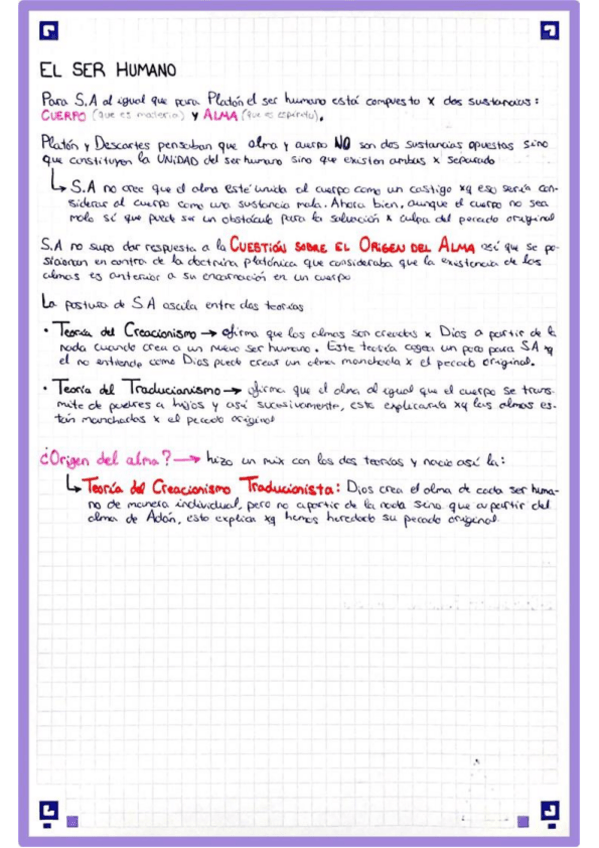 EL SER HUMANO
Para S.A al igual que para Platón el ser humano está compuesto x dos sustancias:
CUERPO (que es materia) y ALMA (que es espíritu).
Platón y Descartes pensaban que alma y cuerpo NO son dos sustancias opuestas sino
que constituyen la UNIDAD del ser humano sino que existen ambas x separado
↳ S.A no cree que el alma esté unida al cuerpo como un castigo xq eso sería con-
siderar al cuerpo como una sustancia mala. Ahora bien, aunque el cuerpo no sea
malo sí que puede ser un obstáculo para la salvación x culpa del pecado original
S.A no supo dar respuesta a la CUESTIÓN SOBRE EL ORIGEN DEL ALMA así que se po-
sicionan en contra de la doctrina platónica que consideraba que la existencia de las
almas es anterior a su encarnación en un cuerpo
La postura de S.A oscila entre dos teorías
· Teoría del Creacionismo → afirma que las almas son creadas x Dios a partir de la
nada cuando crea a un nuevo ser humano. Este teoría cojea un poco para S.A xq
el no entiende como Dios puede crear un alma manchada x el pecado original.
· Teoría del Traducianismo → afirma que el alma al igual que el cuerpo se trans-
mite de padres a hijos y así sucesivamente, esto explicaría xq las almas es-
tán manchadas x el pecado original
¿Origen del alma? → hizo un mix con las dos teorías y nació así la:
↳ Teoría del Creacionismo Traducionista: Dios crea el alma de cada ser huma-
no de manera individual, pero no a partir de la nada sino que a partir del
alma de Adán, esto explica xq hemos heredado su pecado original.